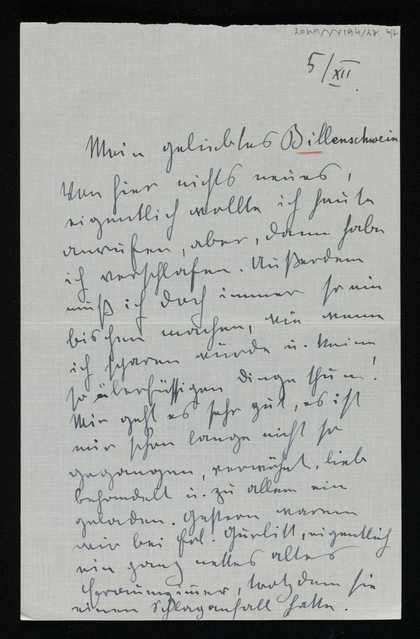 5/XII.
Mein geliebtes Billenschwein
Von hier nichts neues,
eigentlich wollte ich heute
anrufen, aber, dann habe
ich verschlafen. Außerdem
muß ich doch immer so ein
bischen machen, wie wenn
ich sparen würde u. keine
so überflüssigen Dinge thun!
Mir geht es sehr gut, es ist
mir schon lange nicht so
gegangen, verwöhnt, lieb
behandelt u. zu allem ein
geladen. Gestern waren
wir bei Frl. Gurlitt, eigentlich
ein ganz nettes altes
Frauenzimmer, trotzdem sie
einen Schlaganfall hatte.